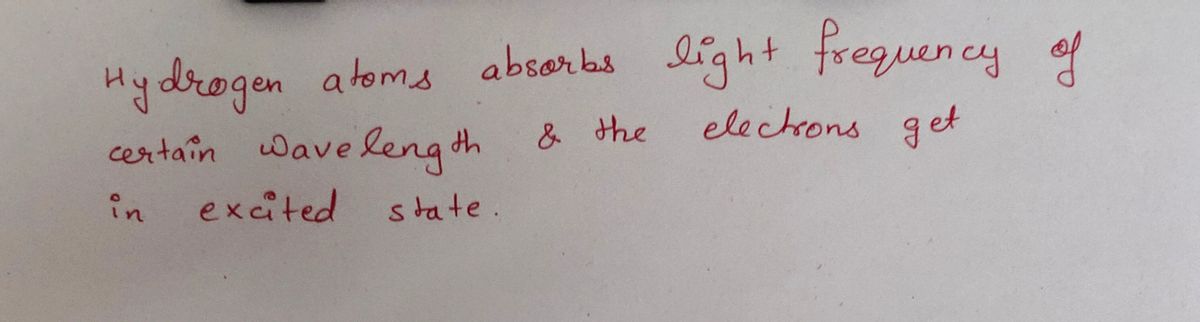 Hydrogen atoms absorbs light frequency of
certain wavelength & the electrons get
in excited state.